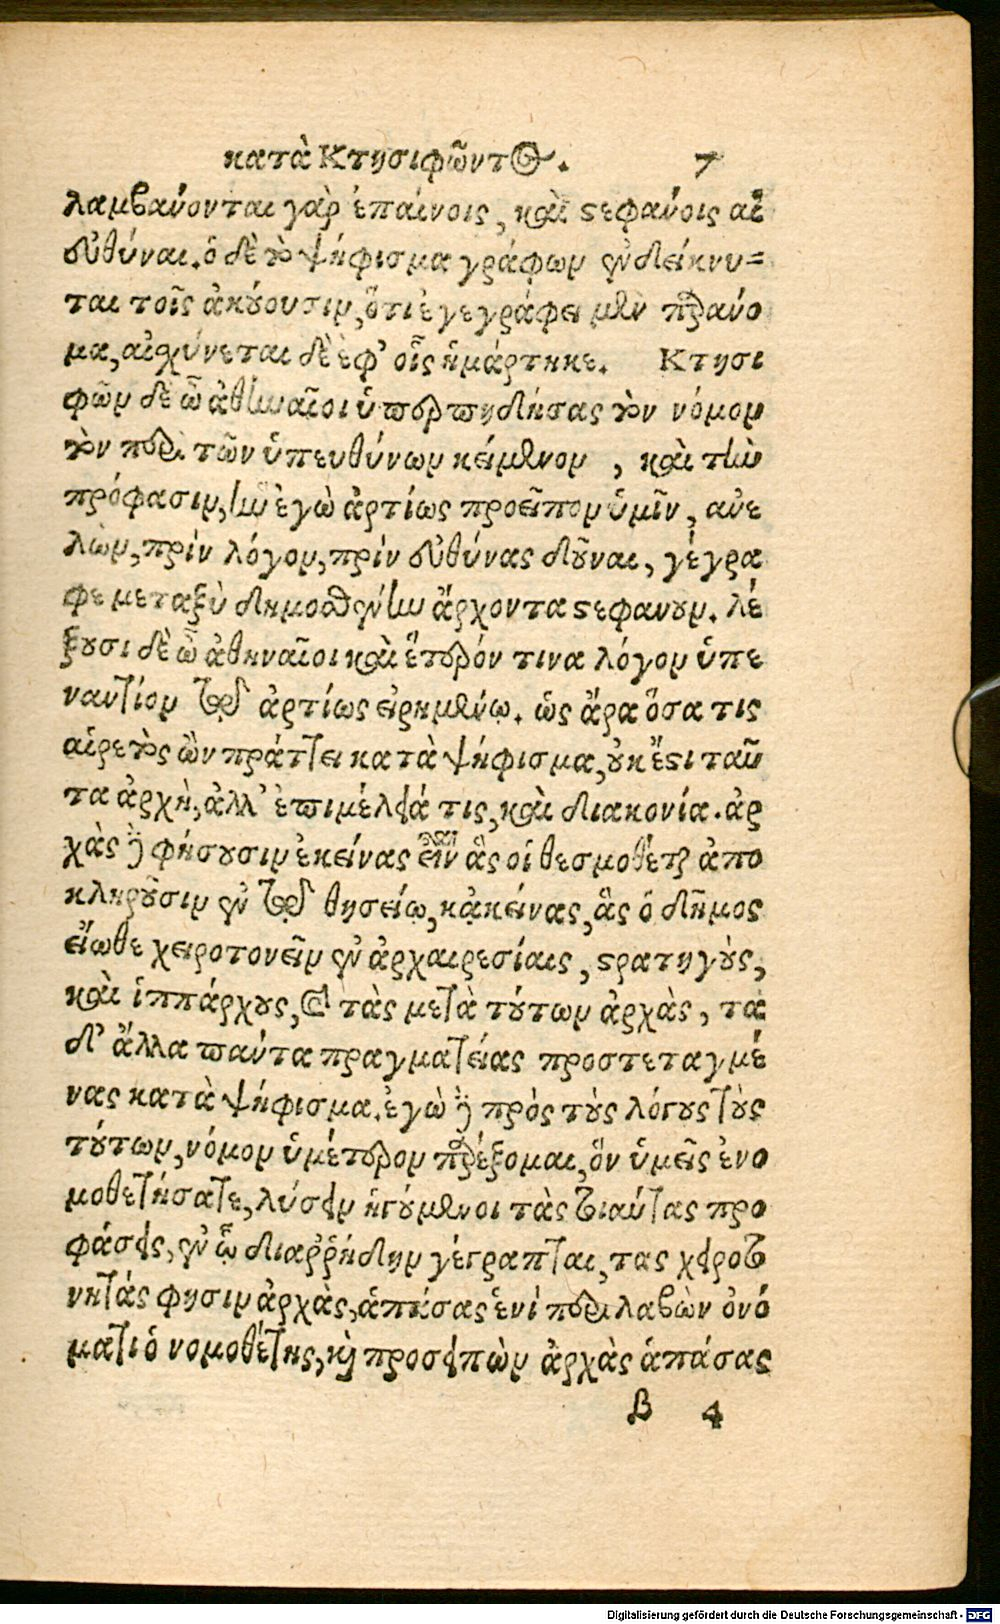 κατὰ Κτησιφῶντος. 7
λαμβάνονται γὰρ ἐπαίνοις, καὶ στεφάνοις αἱ
εὐθύναι. ὁ δὲ τὸ ψήφισμα γράφων ἐνδείκνυ-
ται τοῖς ἀκούουσιν, ὅτι ἐγεγράφει μὲν παράνο
μα, αἰσχύνεται δὲ ἐφ' οἷς ἡμάρτηκε. Κτησι
φῶν δὲ ὦ ἀθηναῖοι ὑπερπηδήσας τὸν νόμον
τὸν περὶ τῶν ὑπευθύνων κείμενον, καὶ τὴν
πρόφασιν, ἣν ἐγὼ ἀρτίως προεῖπον ὑμῖν, ἀνε
λὼν, πρὶν λόγον, πρὶν εὐθύνας δοῦναι, γέγρα
φε μεταξὺ δημοσθένην ἄρχοντα στεφανοῦν. λέ
ξουσι δὲ ὦ ἀθηναῖοι καὶ ἕτερόν τινα λόγον ὑπε
ναντίον τῷ ἀρτίως εἰρημένῳ. ὡς ἄρα ὅσα τις
αἱρετὸς ὢν πράττει κατὰ ψήφισμα, οὐκ ἔστι ταῦ
τα ἀρχὴ, ἀλλ' ἐπιμέλειά τις, καὶ διακονία. ἀρ
χὰς δὲ φήσουσιν ἐκείνας εἶναι ἃς οἱ θεσμοθέται ἀπο
κληροῦσιν ἐν τῷ θησείῳ, κἀκείνας, ἃς ὁ δῆμος
εἴωθε χειροτονεῖν ἐν ἀρχαιρεσίαις, στρατηγοὺς,
καὶ ἱππάρχους, καὶ τὰς μετὰ τούτων ἀρχὰς, τὰ
δ' ἄλλα πάντα πραγματείας προστεταγμέ
νας κατὰ ψήφισμα. ἐγὼ δὲ πρὸς τοὺς λόγους τοὺς
τούτων, νόμον ὑμέτερον παρέξομαι, ὃν ὑμεῖς ἐνο
μοθετήσατε, λύσειν ἡγούμενοι τὰς τοιαύτας προ
φάσεις, ἐν ᾧ διαῤῥήδην γέγραπται, τας χειροτο
νητάς φησιν ἀρχὰς, ἁπάσας ἑνὶ περιλαβὼν ὀνό
ματι ὁ νομοθέτης, καὶ προσειπὼν ἀρχὰς ἁπάσας
B 4
Digitalisierung gefördert durch die Deutsche Forschungsgemeinschaft - DFG